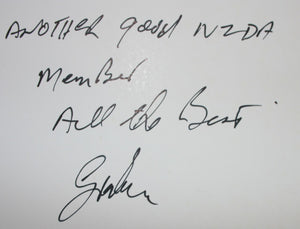 ANOTHER good NZDA
Member
All the Best